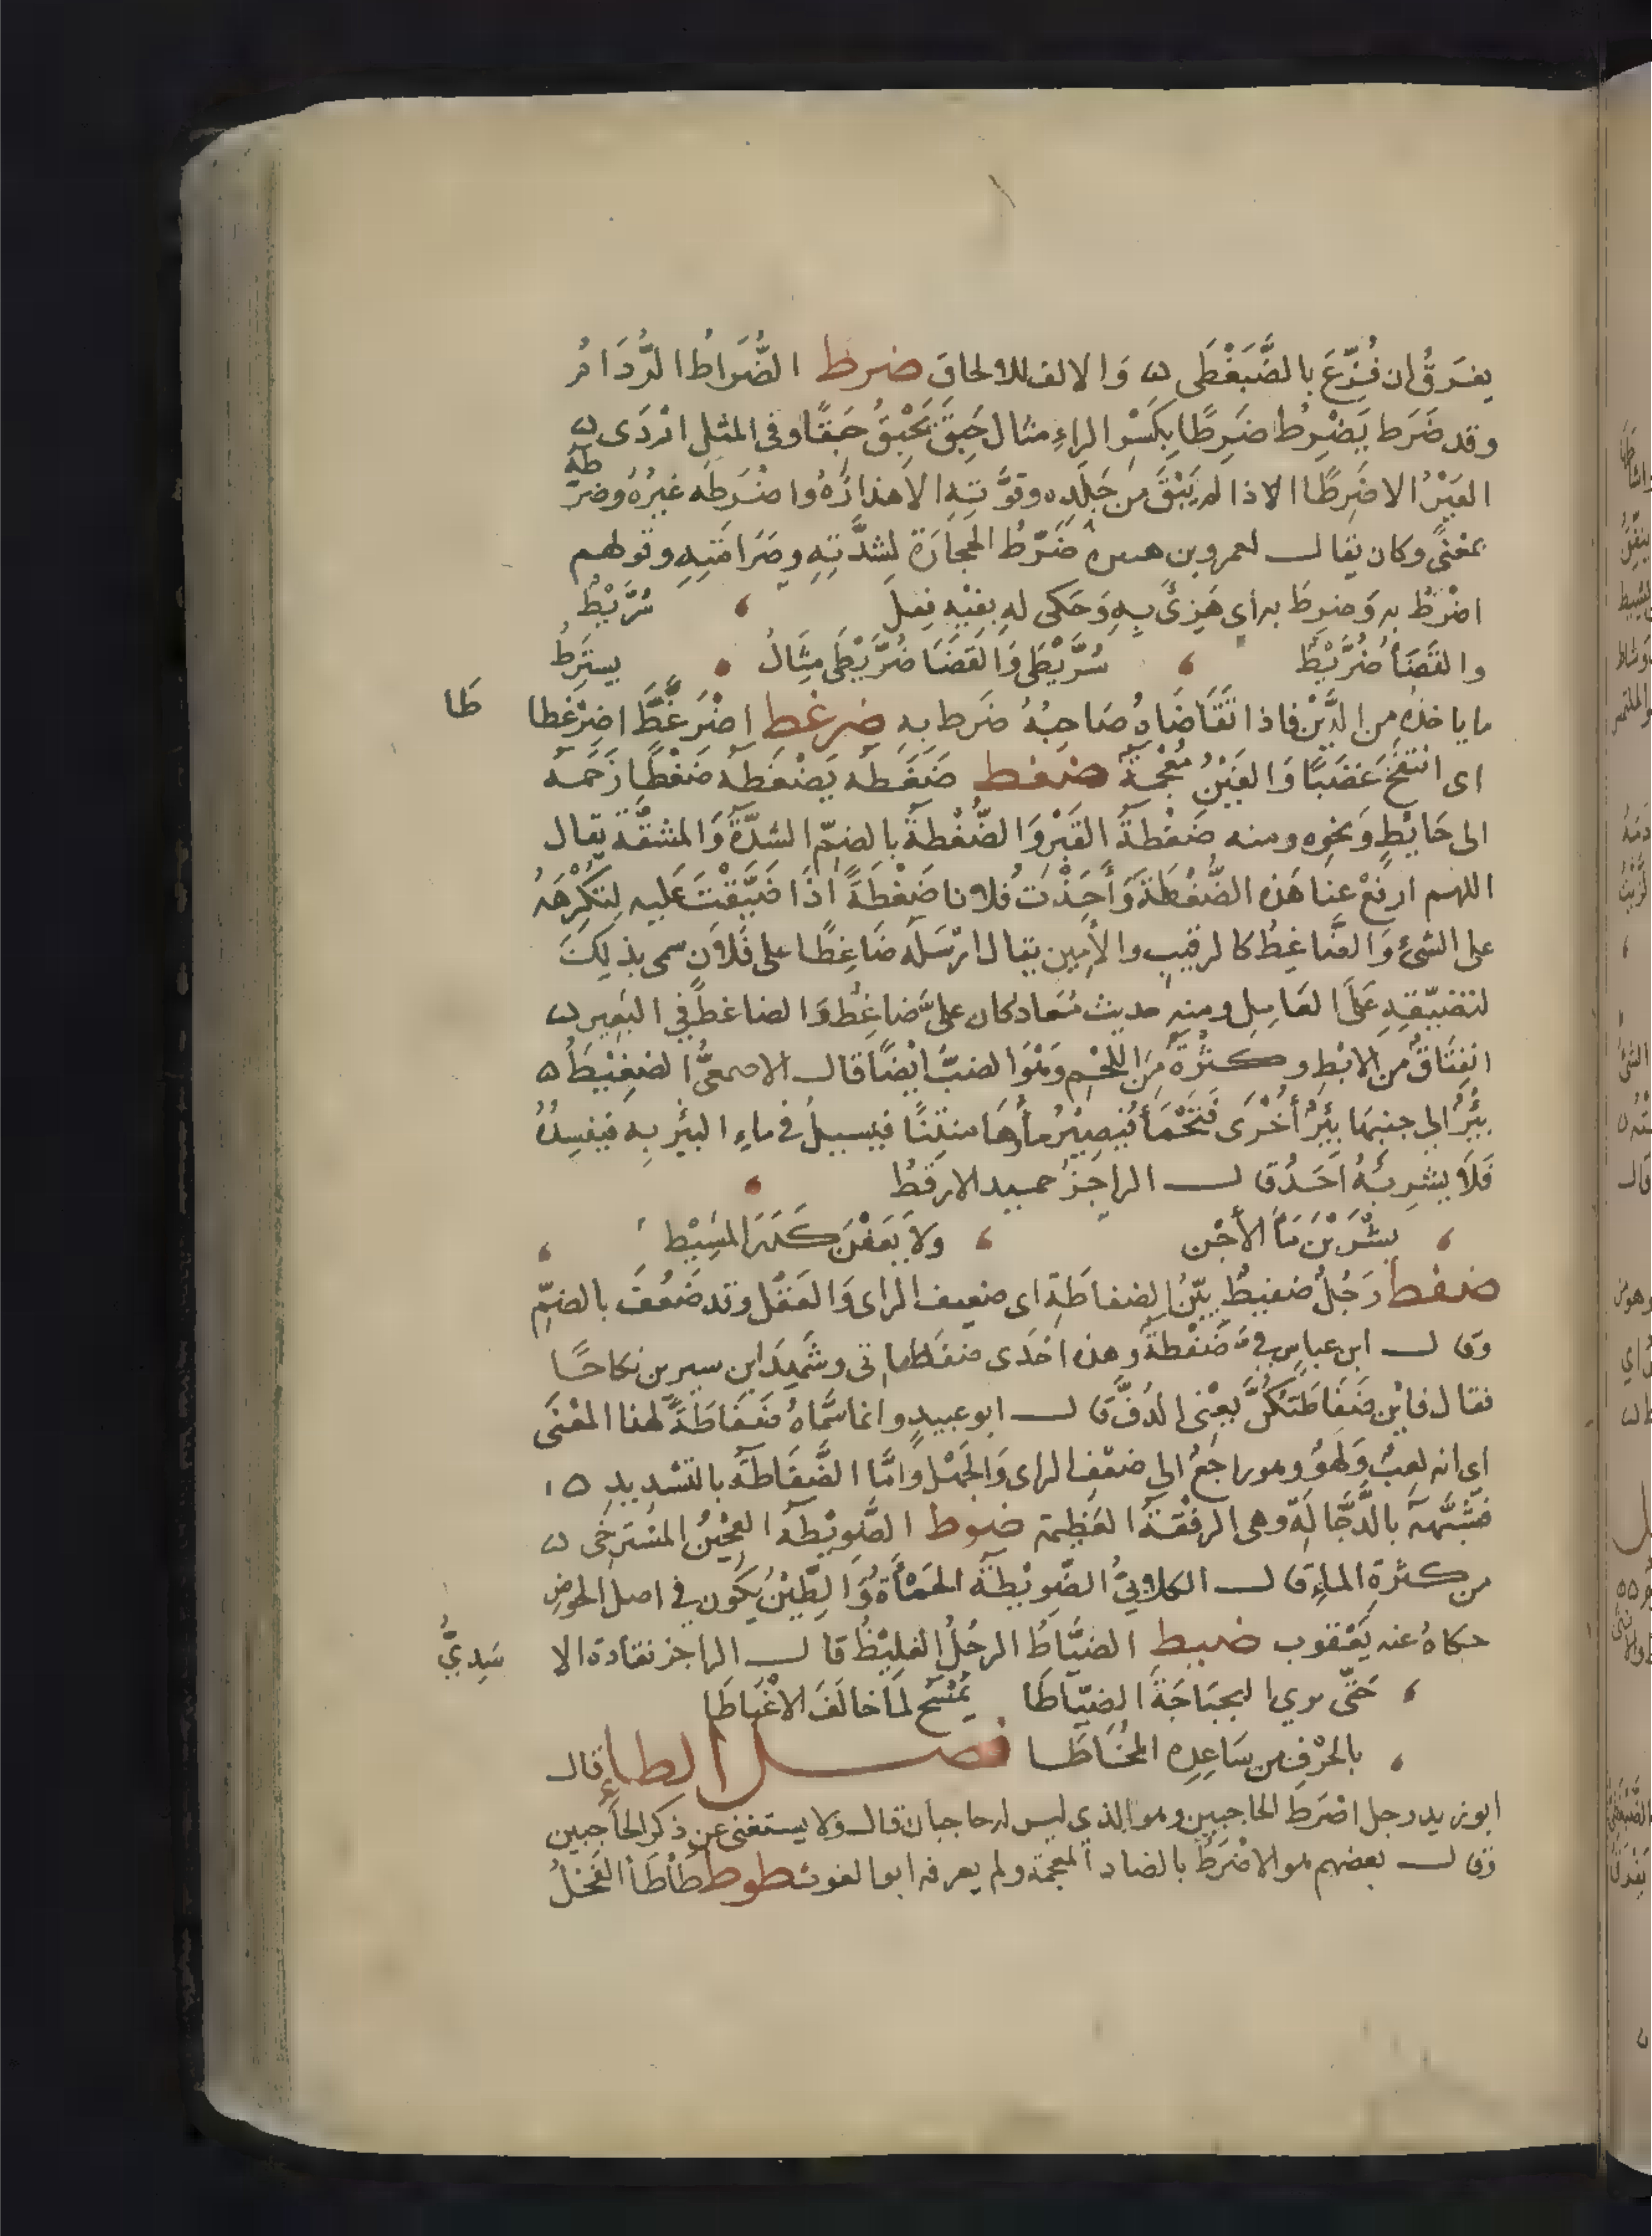 يفرقُ ان فُزِّعَ بالضَّبَغْطَى ۞ وَالالف للالحاق ضرط الضُّرَاطُ الرُّدَامُ
وقد ضَرَط يَضْرِطُ ضَرِطًا بِكَسْرِ الراءِ مثال حَبَقَ يَحْبِقُ حَبِقًا وفى المثل اَوْدَى
العَيْرُ الا ضَرِطًا اى لم يَبْقَ مِن جَلَدِه وقوَّتِهِ الا هذا واَضْرَطَه غيرُهُ وضرَّطَهُ
بمعْنًى وكان يقال لعمرو بن هند مُضَرِّطُ الحجارَة لِشِدَّتِهِ وصَرَامَتِهِ وقولهم
اضْرَطَ به وَضرطَ به اى هَزِئَ بِهِ وَحَكى له بِفِيْهِ فِعلَ سُرَّيْطٌ
والقَضَاُ ضُرَّيْطٌ سُرَّيْطَى وَالقَضَا ضُرَّيْطَى مِثَالُ يسترَطُ
ما ياخذه مِن الدَّيْن فاذا تَقَاضَاهُ صَاحِبُهُ ضَرط بهِ ضرغط اضْرَغَطَّ اضرِغطاطًا
اى انتَفَخَ غَضَبًا وَالغَيْنُ مُعْجمَةٌ ضغط ضَغَطه يَضْغَطه ضَغْطًا زَحَمَه
الى حَايِطٍ وَنحوِه ومنه ضَغْطَةُ القَبْر وَالضُّغْطة بالضمِّ الشدَّةُ وَالمشقَّة يقال
اللهم ارفعْ عنا هَذه الضُّغْطَةَ وَاَخَذْتُ فلانا ضَغْطَةً اذا ضَيَّقْتَ عَليه لِتكْرِهَهُ
على الشئ وَالضَّاغِطُ كالرقيب والاَمِين يقال ارْسَلَه ضَاغِطًا على فلاَنٍ سمى بذلِكَ
لتضيِيقِهِ عَلَى العَامِل ومنه حديث مُعَاد كان علىَّ ضاغِطٌ وَالضاغط في البَعِير
انفِتَاقٌ مِن الابْطِ وكثرَةٌ مِنَ اللَّحْمِ وَهُوَ الضبُّ اَيْضًا قال الاصمعىُّ الضغِيْطُ
بِئرٌ الى جنبهَا بِئرٌ أُخْرَى فَتَحْمَأُ فيصيرُ ماؤُهَا منتِنًا فيسيلُ فى ماءِ البئر بِه فيفسِدُهُ
فَلاَ يشرِبُهُ اَحَدٌ قال الراجزُ حميد الارقط
يشْرَبْنَ مَاءَ الأَجْن ولاَ يَعَفْنَ كَدَرَ المَسِيْطِ
ضفط رَجُلٌ ضفيطٌ بيِّنُ الضفاطَةِ اى ضعيف الراى وَالعَقْل وقد ضَفُفَ بالضمِّ
وقال ابن عباس فىَّ ضَفْطةٌ وهذه اِحْدَى ضفَطاتى وشَهِدَ ابن سيرين نكاحًا
فقال فايْن ضَفَاطَتكُنَّ يعنى الدُفَّ قال ابو عبيد وانما سَمَّاهُ ضَفَاطَةً لهذا المعْنَى
اى انه لعِبٌ وَلَهوٌ وهو راجعٌ الى ضعْفِ الراى وَالجَهْل وَاَمَّا الضَّفَّاطَةُ بالتشديدِ
فشبِّهةٌ بالدَّجَّالَة وهى الرفْقةُ العَظِيمة ضوط الضَّوِيْطةُ العجينُ المسْتَرخى
من كثرَةِ الماء قال الكلابىُّ الضَّوِيْطةُ الحَمْأَةُ وَالطِّيْنُ يكون فى اصل الحوض
حكاهُ عنه يَعْقوب ضيط الضيَّاطُ الرجُلُ الغليْظُ قال الراجز نقادة الا سَدِيُّ
حَتَّى ترى البجبَاجَةَ الضيَّاطَا يَمْسَح لمَا خالَفَ الاغْبَاطَا
بالحرْفِ من سَاعِدِه المُخَاطَا فصل الطاء قال
ابو زيد رجل اضْرَط الحاجبين وهو الذى ليس له حاجبان قال ولا يستغنى عن ذكر الحاجبين
وقال بعضهم هو الاضْرَطُ بالضاد المعجمة ولم يعرفه ابو الغوث طوط طَأطَأ الفَحْلُ